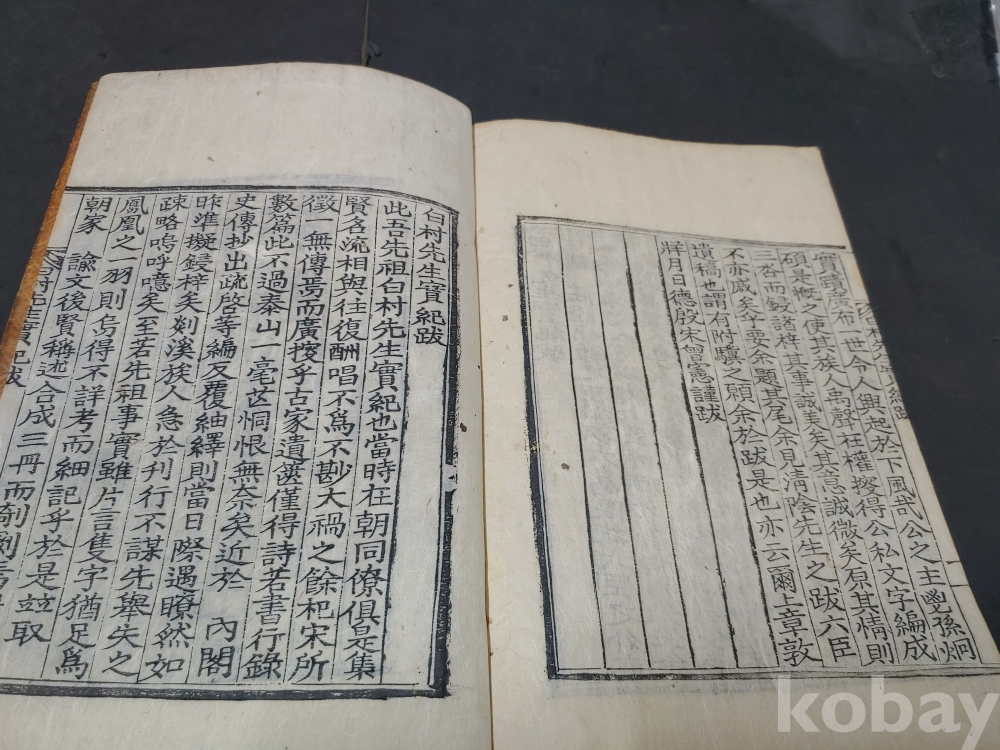 實蹟布一世令人興起於下風哉公之主鬯孫炯
碩是懼之使其族人禹聲在權搜得公私文字編成
三呇而鋟諸梓其事誠美矣其意誠微矣原其情則
不亦戚矣乎要余題其尾余見淸陰先生之跋六臣
遺稿也謂有附驥之願余於跋是也亦云爾上章敦
牂月日德殷宋曾憲謹跋
白村先生實紀跋
此吾先祖白村先生實紀也當時在朝同僚俱是集
賢名流相與往復酬唱不爲不尠大禍之餘杞宋所
徵一無傳焉而廣搜乎古家遺篋僅得詩若書行錄
數篇此不過泰山一毫芒恫恨無奈矣近於 內閣
史傳抄出疏啓等編反覆紬繹則當日際遇瞭然如
昨準擬鋟梓矣剡溪族人急於刊行不謀先擧失之
疎略嗚呼噫矣至若先祖事實雖片言隻字猶足爲
鳳凰之一羽則烏得不詳考而細記乎於是並取
朝家 諭文後賢稱述合成三冊而剞劂
村先生實紀跋
kobay